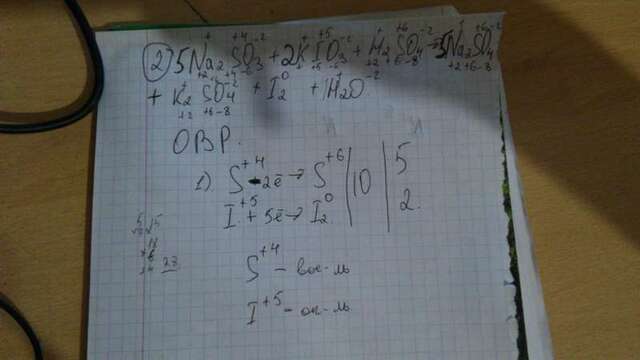 ② 5Na₂SO₃ + 2KIO₃ + H₂SO₄ → 5Na₂SO₄
+ K₂SO₄ + I₂⁰ + H₂O
ОВР.
1) S⁺⁴ - 2ē → S⁺⁶ | 10 | 5
I⁺⁵ + 5ē → I₂⁰ | | 2.
S⁺⁴ - вос-ль
I⁺⁵ - ок-ль